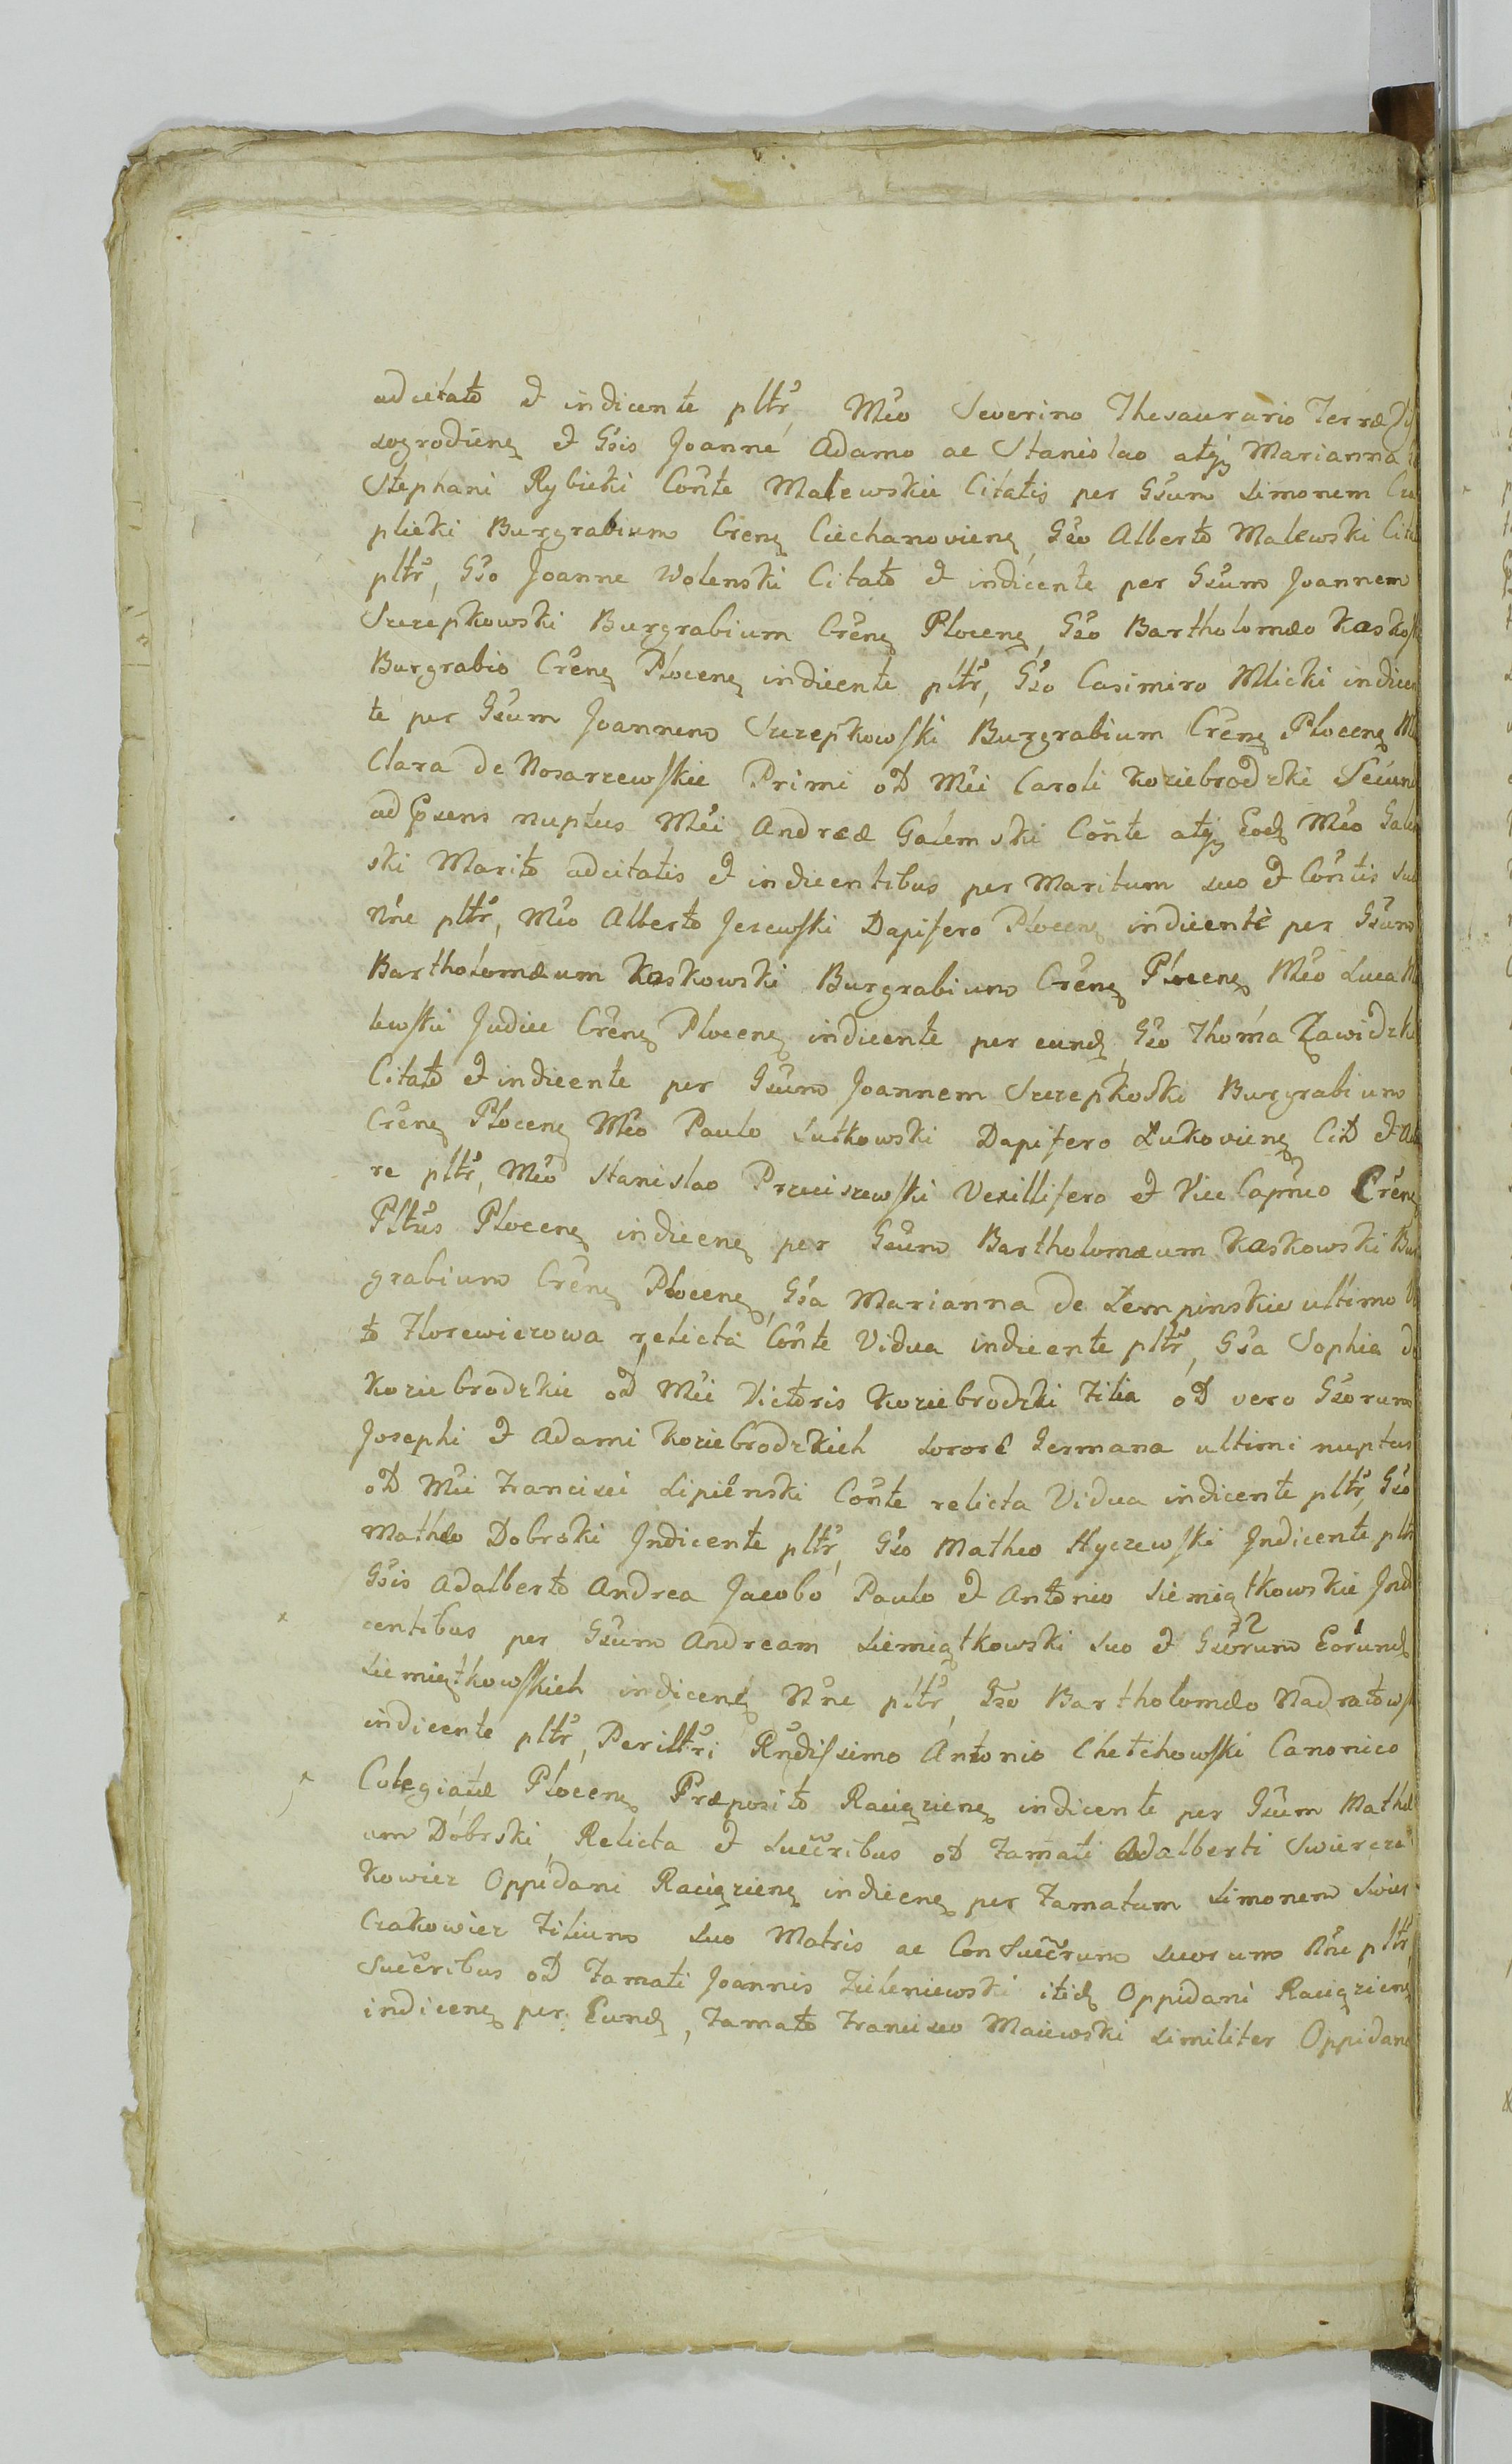 adcitato et indicente pltr, Mco Severino Thesaurario Terræ
sogrodiens et Gsis Joanne Adamo ac Stanislao atq Marianna
Stephani Rybicki Conte Malewskie Citatis per Gsum Simonem
plicki Burgrabium Crens Ciechanoviens, Gso Alberto Malewski
pltr, Gso Joanne Wolenski Citato et indicente per Gsum Joannem
Szczepkowski Burgrabium Crens Plocens, Gso Bartholomæo
Burgrabio Crens Plocens indicente pltr, Gso Casimiro Mlicki indicen
te per Gsum Joannem Szczepkowski Burgrabium Crens Plocens
Clara de Nosarzewskie Primi oD Mci Caroli Koziebrodzki
ad psens nuptus Mci Andreæ Galemski Conte atq Eod Mco
ski Marito adcitatis et indicentibus per Maritum suo et Contis
Nne pltr, Mco Alberto Jezewski Dapifero Plocens indicente per Gsum
Bartholomæum Kaskowski Burgrabium Crens Plocens Mco Luca
lewski Judice Crens Plocens indicente per eund, Gso Thoma Zawidzki
Citato et indicente per Gsum Joannem Szczepkoski Burgrabium
Crens Plocens Mco Paulo Sutkowski Dapifero Lukoviens CitD et
re pltr, Mco Stanislao Przeciszewski Vexillifero et Vice Capneo Crens
Pltus Plocens indicens per Gsum Bartholomæum Kaskowski
grabium Crens Plocens, Gsa Marianna de Lempinskie ultimo
to Florewiczowa relicta Conte Vidua indicente pltr, Gsa Sophia
Koziebrodzkie oD Mci Victoris Koziebrodzki Filia oD vero Gsorum
Josephi et Adami Koziebrodzkich sorore Germana ultimi nuptus
oD Mci Francisci Lipienski Conte relicta Vidua indicente pltr, Gso
Matheo Dobrski Indicente pltr, Gso Matheo Hyczewski Indicente pltr
Gsis Adalberto Andrea Jacobo Paulo et Antonio Siemiątkowskie
centibus per Gsum Andream Siemiątkowski suo et Gsorum Eorund
Siemiątkowskich indicens Nne pltr, Gso Bartholomæo
indicente pltr, Perilltri Rndissimo Antonio Chetchowski Canonico
Colegiatæ Plocens Præposito Raciąziens indicente per Gsum Mathe
um Dobrski, Relicta et Succribus oD Famati Adalberti Swiercza
kowicz Oppidani Raciąziens indicens per Famatum Simonem Swier
czakowicz Filium suo Matris ac ConSuccrum suorum Nne pltr,
Succribus oD Famati Joannis Zieleniewski itid Oppidani Raciąziens
indicens per Eund, Famato Francisco Maiewski similiter Oppidano